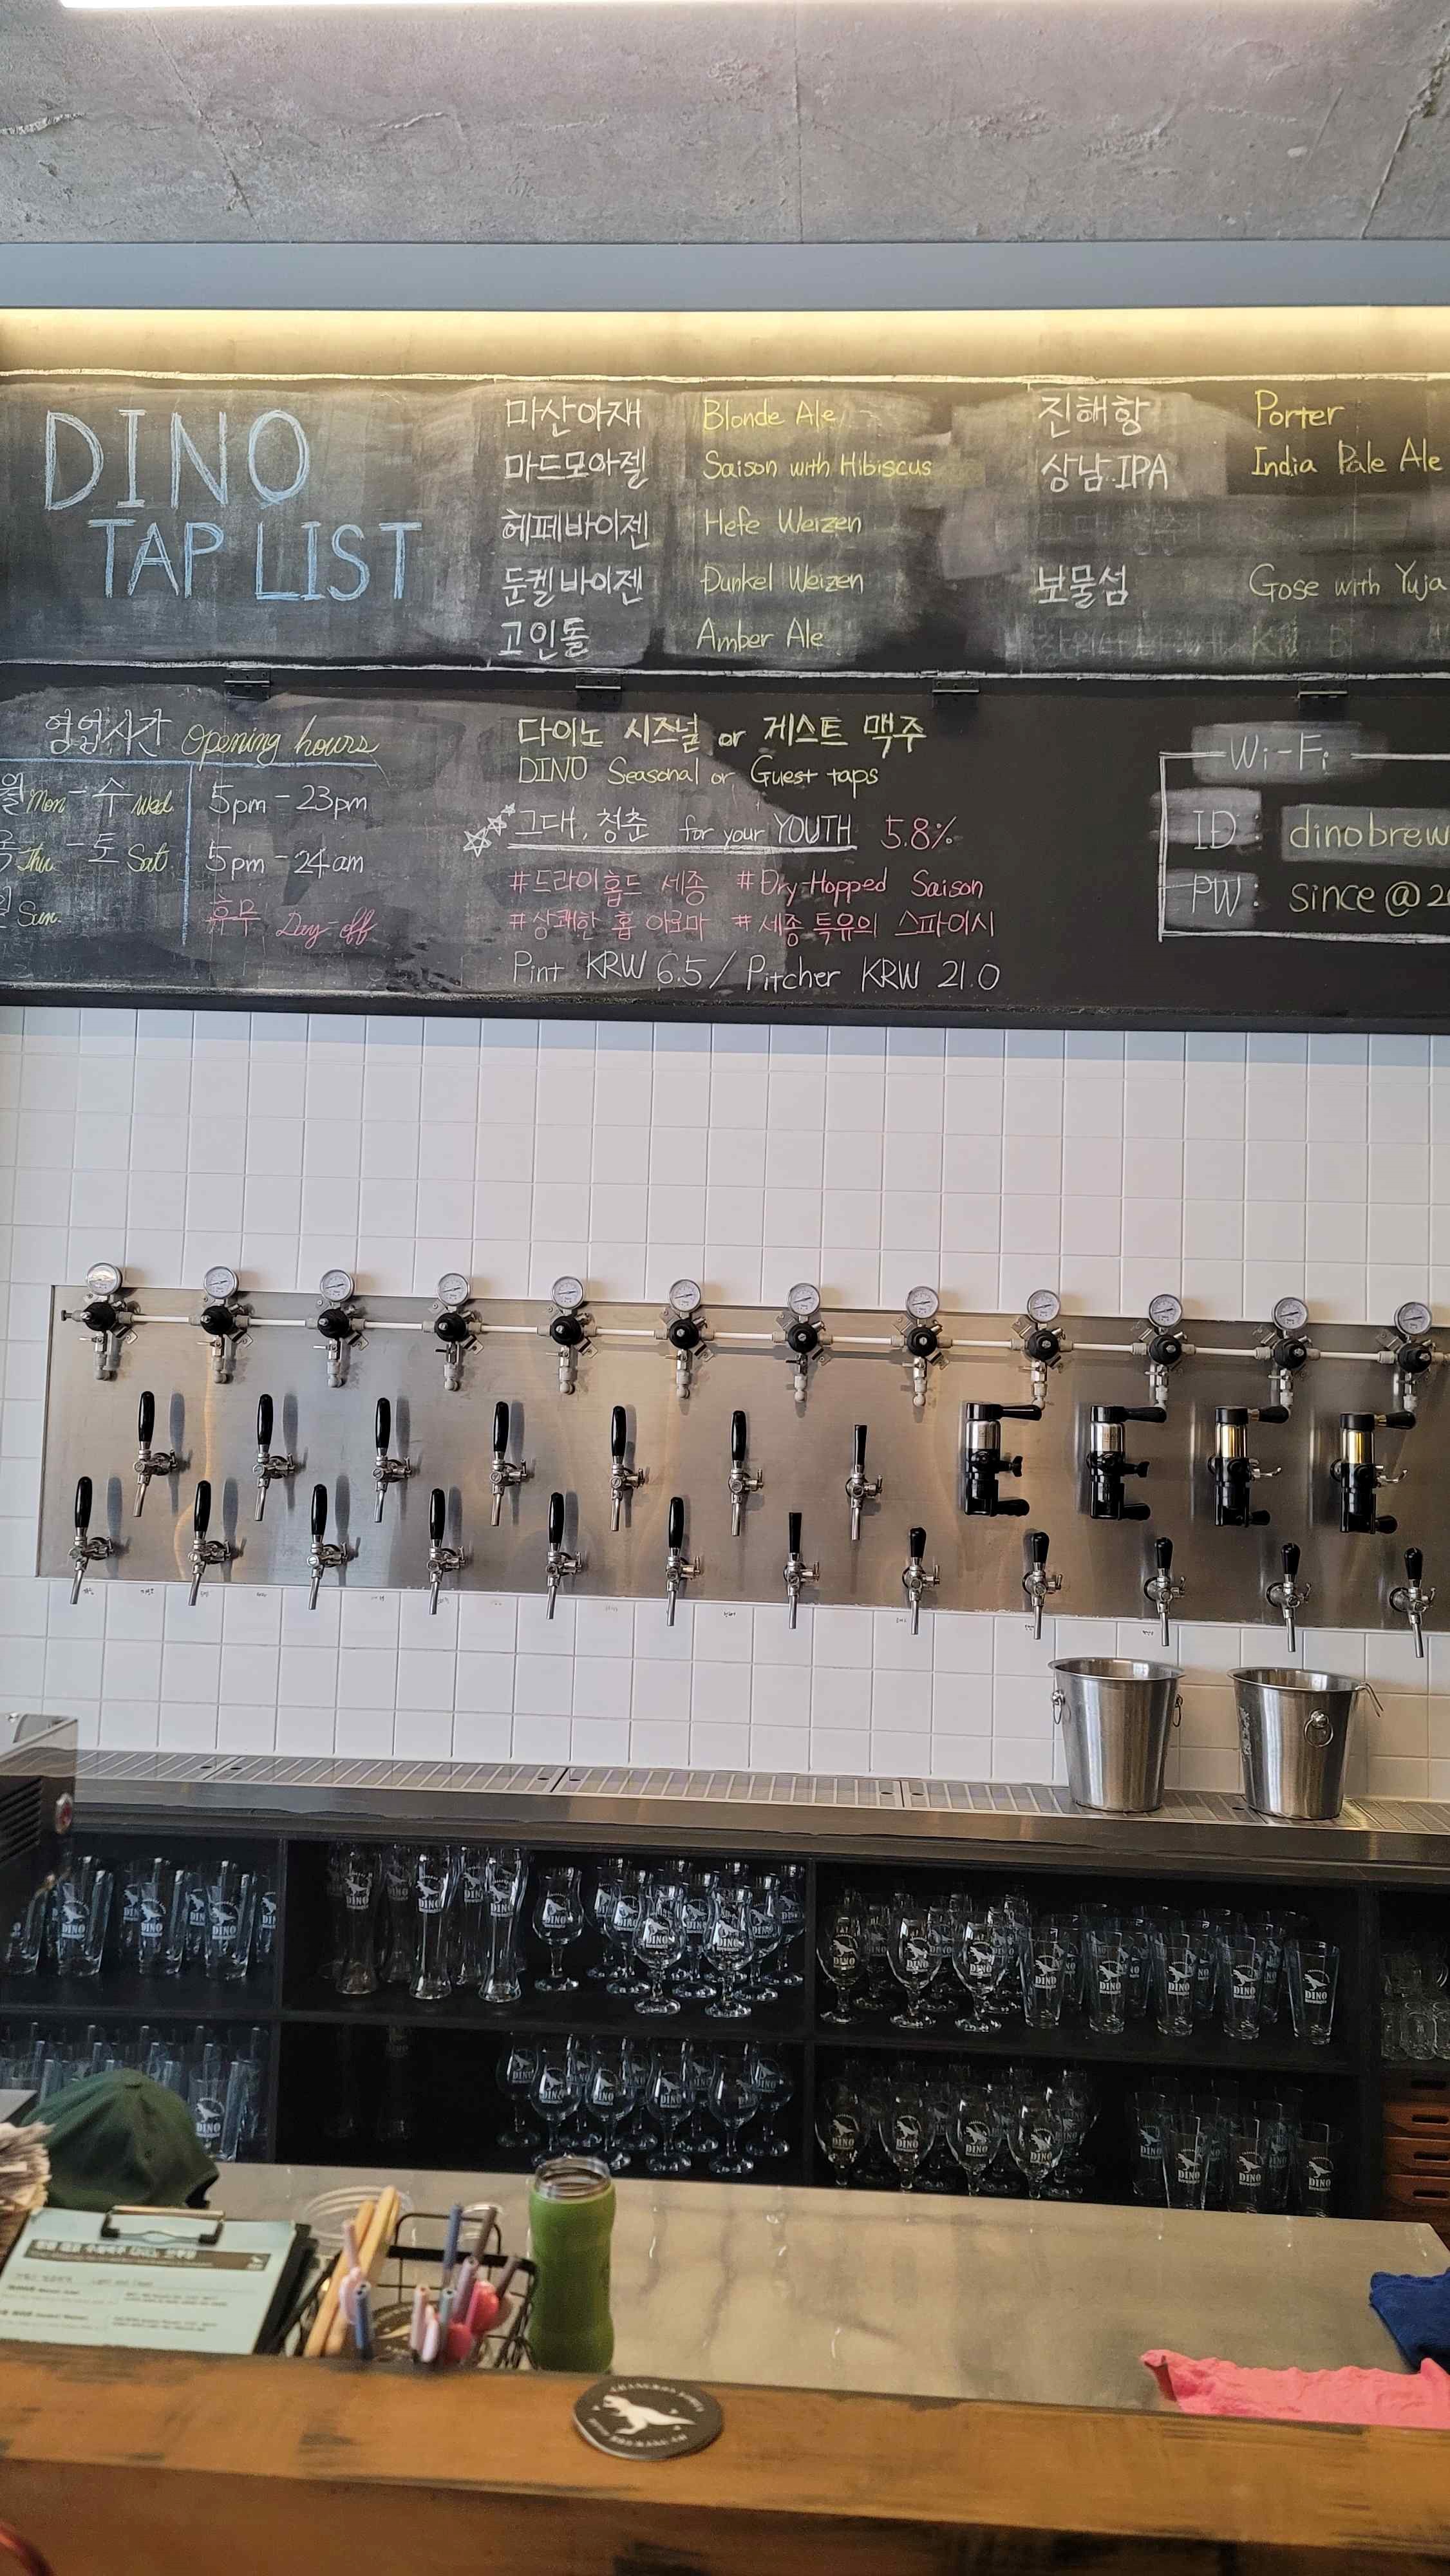 DINO
TAP LIST
마산아재 Blonde Ale
마드모아젤 Saison with Hibiscus
헤페바이젠 Hefe Weizen
둔켈바이젠 Dunkel Weizen
고인돌 Amber Ale
진해항 Porter
상남 IPA India Pale Ale
보물섬 Gose with Yuja
영업시간 Opening hours
월 Mon - 수 Wed 5pm - 23pm
목 Thu - 토 Sat 5pm - 24am
일 Sun. 휴무 Day-off
다이노 시즈널 or 게스트 맥주
DINO Seasonal or Guest taps
그대, 청춘 for your YOUTH 5.8%
#드라이홉드 세종 #Dry-Hopped Saison
#상쾌한 홉 아로마 #세종 특유의 스파이시
Pint KRW 6.5 / Pitcher KRW 21.0
Wi-Fi
ID: dinobrew
PW: since@20
DINO